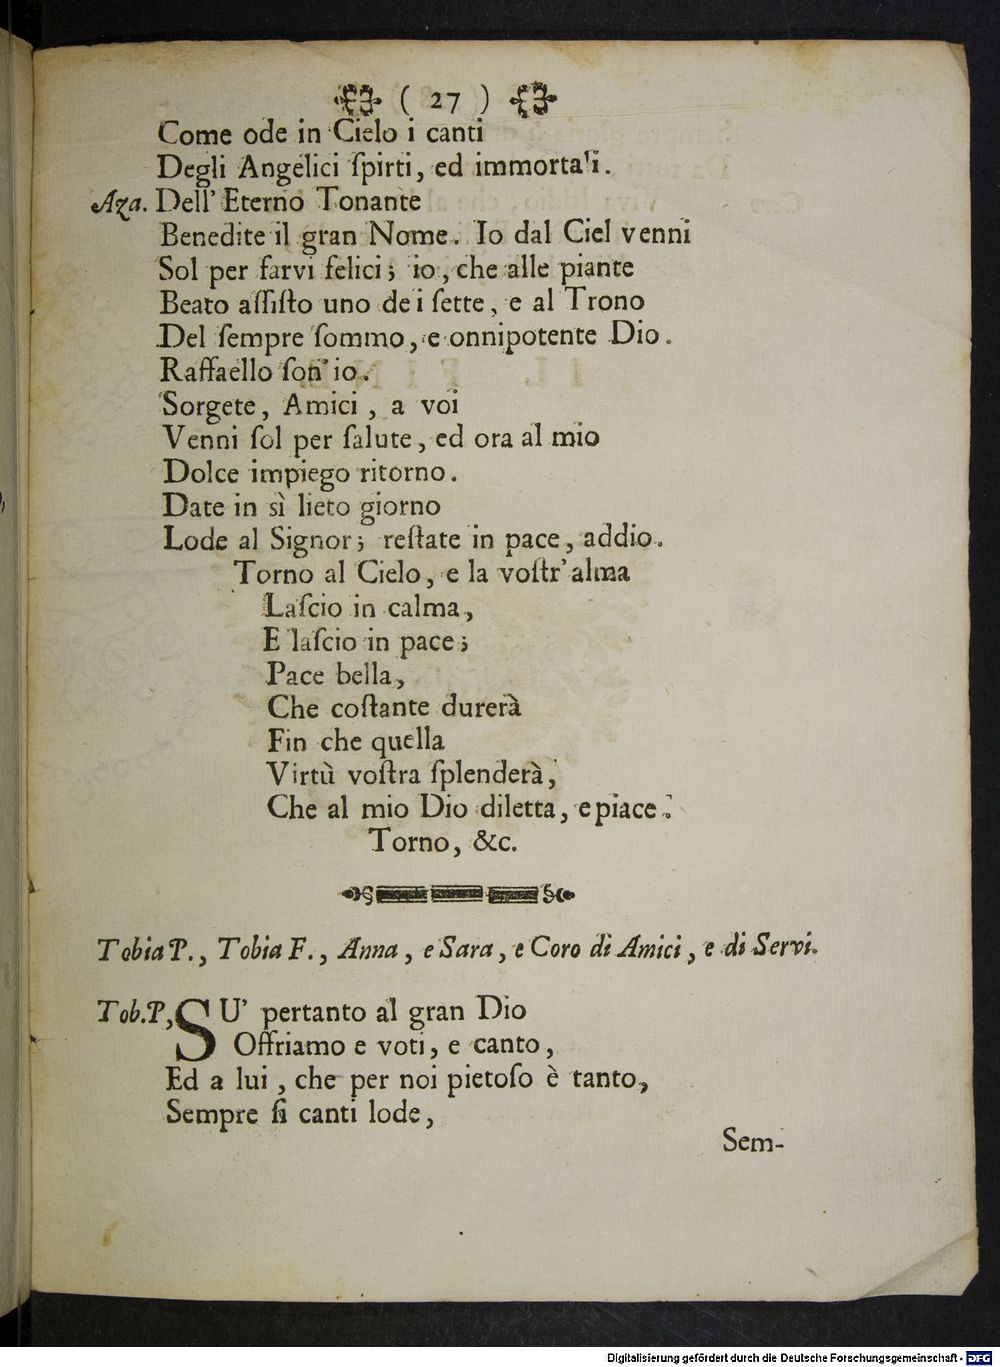 ( 27 )
Come ode in Cielo i canti
Degli Angelici ſpirti, ed immortali.
Aza. Dell' Eterno Tonante
Benedite il gran Nome. Io dal Ciel venni
Sol per farvi felici; io, che alle piante
Beato aſſiſto uno dei ſette, e al Trono
Del ſempre ſommo, e onnipotente Dio.
Raffaello ſon' io.
Sorgete, Amici, a voi
Venni ſol per ſalute, ed ora al mio
Dolce impiego ritorno.
Date in sì lieto giorno
Lode al Signor; reſtate in pace, addio.
Torno al Cielo, e la voſtr' alma
Laſcio in calma,
E laſcio in pace;
Pace bella,
Che coſtante durerà
Fin che quella
Virtù voſtra ſplenderà,
Che al mio Dio diletta, e piace.
Torno, &c.
Tobia P., Tobia F., Anna, e Sara, e Coro di Amici, e di Servi.
Tob. P. SU' pertanto al gran Dio
Offriamo e voti, e canto,
Ed a lui, che per noi pietoſo è tanto,
Sempre ſi canti lode,
Sem-
Digitalisierung gefördert durch die Deutsche Forschungsgemeinschaft - DFG